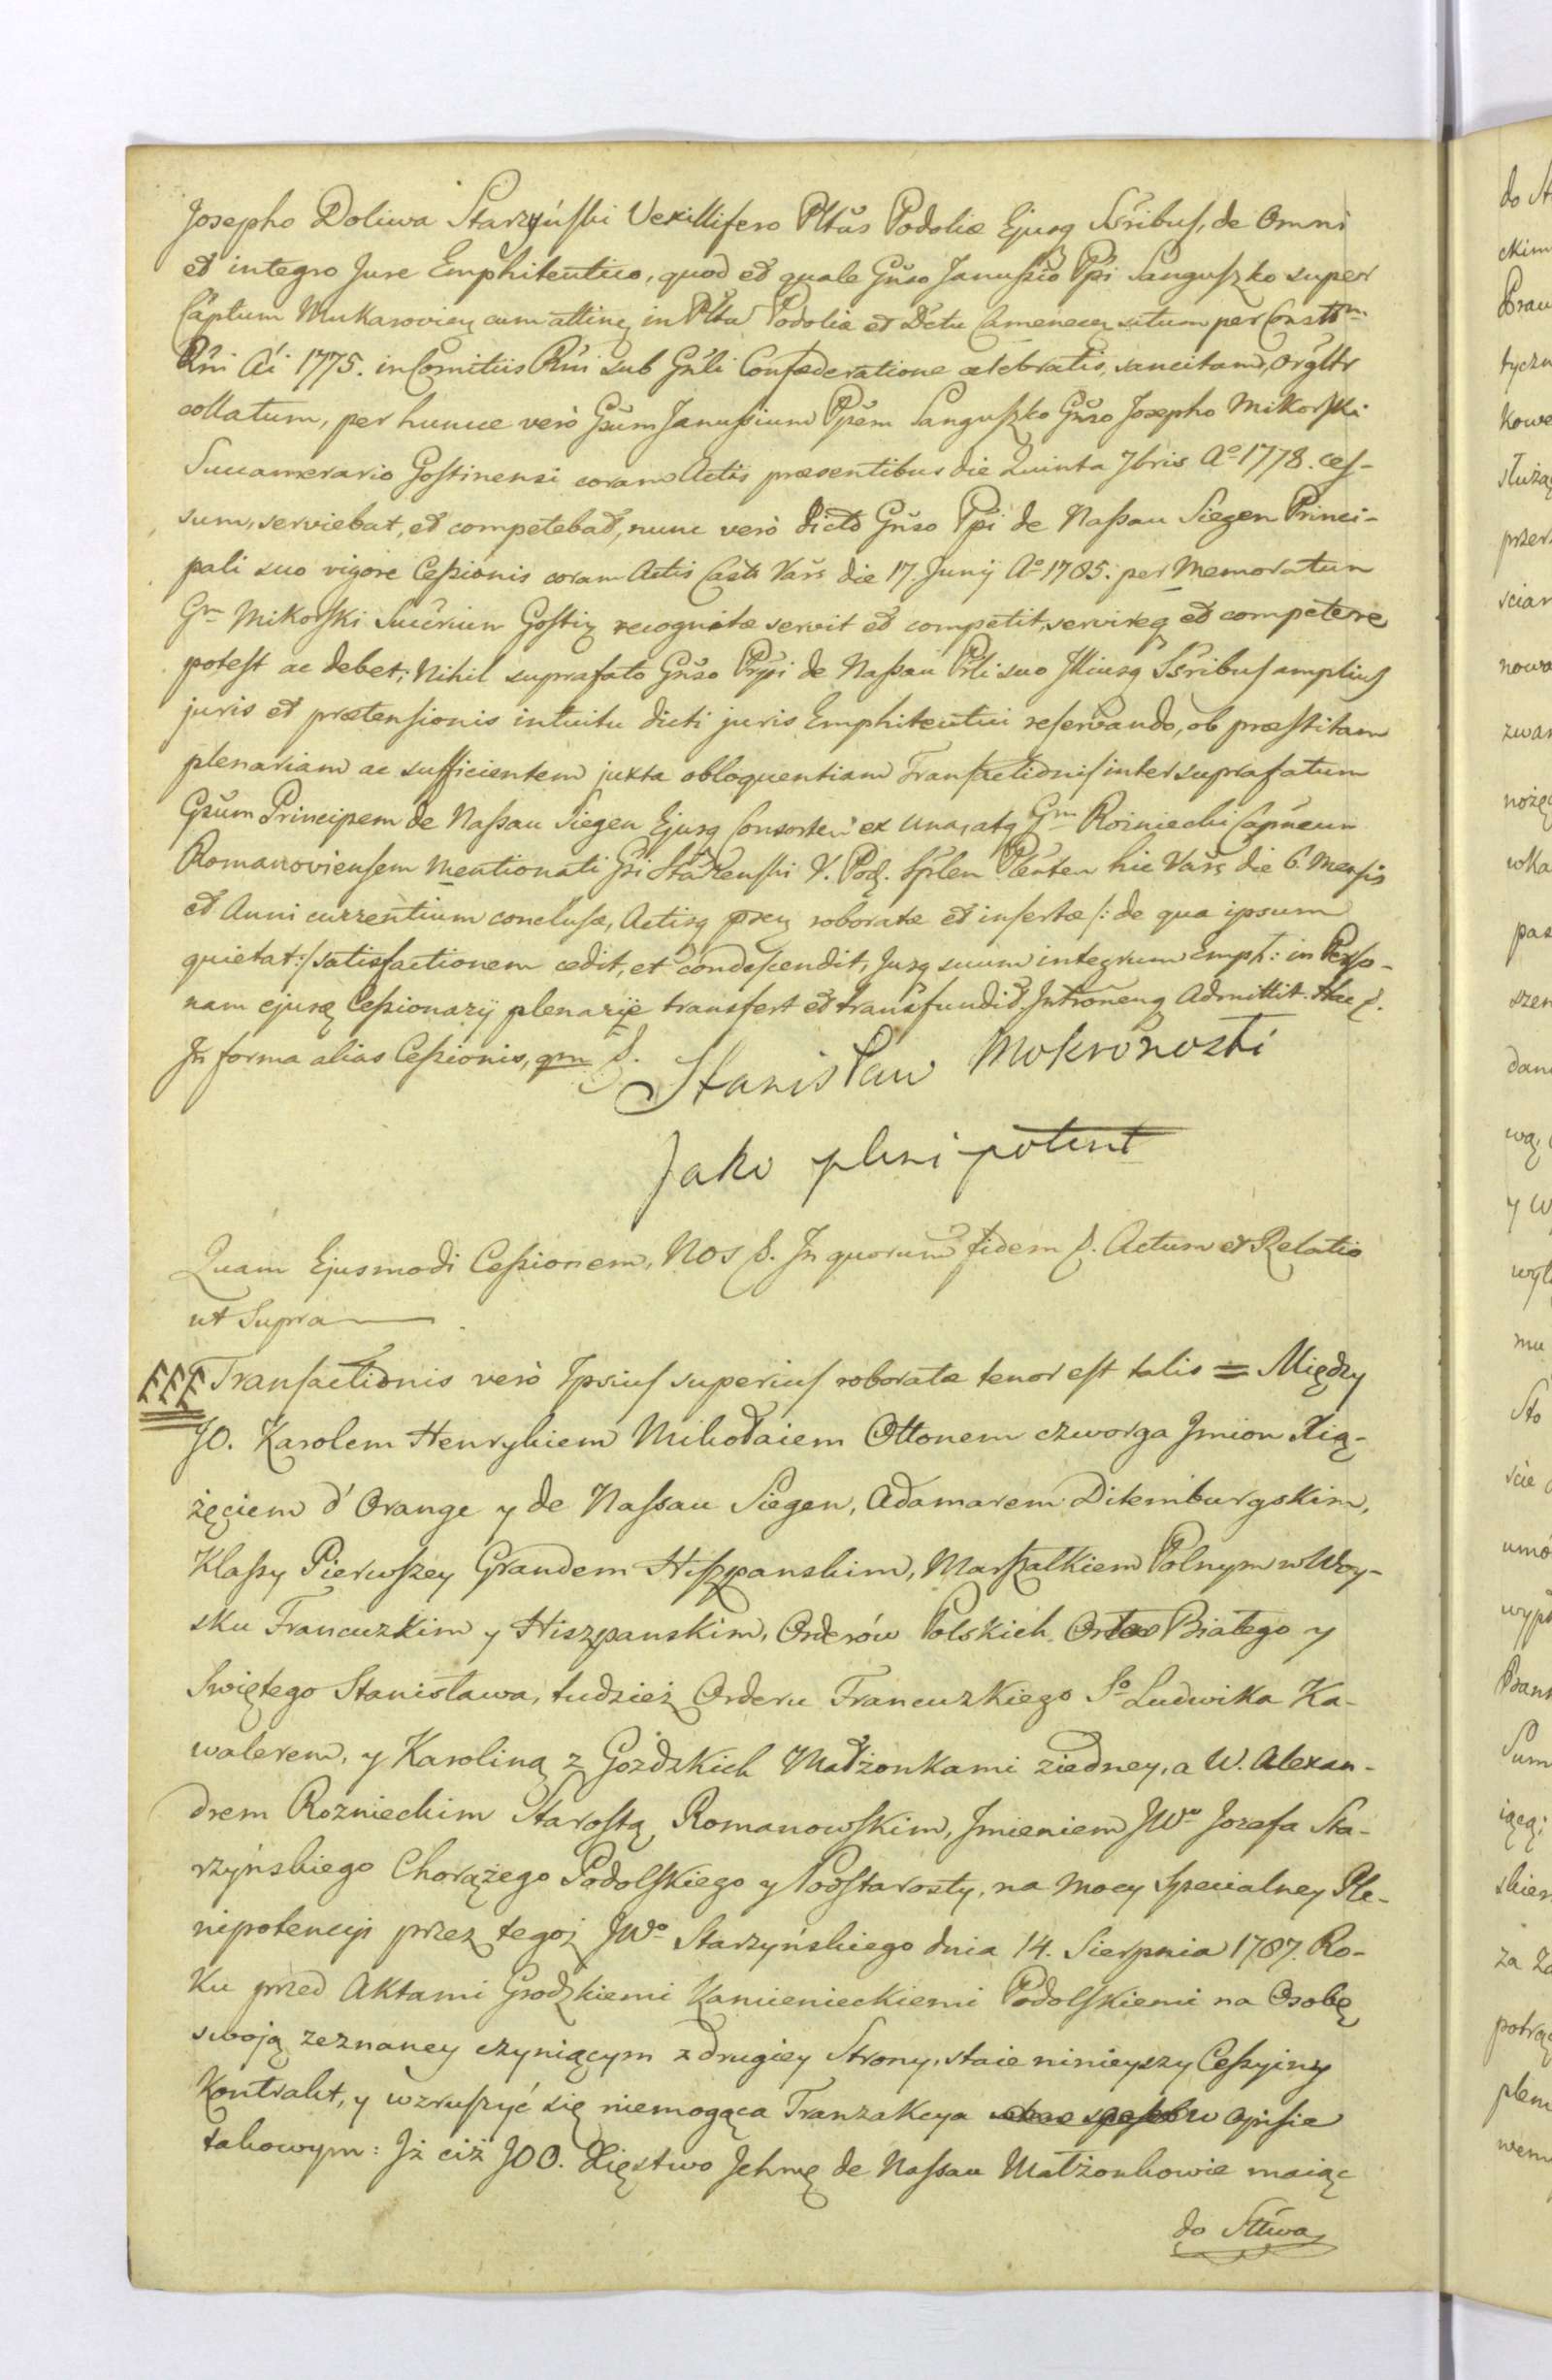 Josepho Doliwa Starzyński Vexillifero Pltũs Podoliæ Ejusq Sŝribus, de Omni
et integro Jure Emphiteutico, quod et quale Gñso Janussio Ppi Sanguszko super
Captum Mukaroviey cum attiney in Pltu Podoliæ et Dctu Camenecey situm per Consttm
Rñi Ai 1775. in Comitiis Rñi sub Gñli Confæderatione celebratis, sancitam, Orgltr
collatum, per hunce verò Gsum Janussium Ppem Sanguszko Gñso Josepho Mikorski
Succamerario Gostinensi coram Actis præsentibus die Quinta 7bris Ao 1778. ces-
sum, serviebat, et competebat, nunc verò dicto Gñso Ppi de Nassau Siegen Princi-
pali suo vigore Cessionis coram Actis Castr Vars die 17. Junij Ao 1785. per Memoratum
Gm Mikorski Succrium Gostiņ recognitæ servit et competit, servireq et competere
potest ac debet; Nihil suprafato Gñso Prpi de Nassau Prli suo Illiusq Sŝribus amplius
juris et prætensionis intuitu dicti juris Emphiteutici reservando, ob præstitam
plenariam ac sufficientem juxta obloquentiam Transactionis inter suprafatum
Gsum Principem de Nassau Siegen Ejusq Consortem ex una, atq Gm Rozniecki Capneum
Romanoviensem Mentionati Gsi Starzenski V. Pod. Splem Plenten hic Vars die 6. Mensis
et Anni currentium conclusæ, Actisq præs roboratæ et insertæ /: de qua ipsum
quietat :/ satisfactionem cedit, et condescendit, Jusq suum integrum Emph: in Perso-
nam ejusq Cessionarij plenarie transfert et transfundit, Intromeng Admittit. Hac S.
In forma alias Cessionis, qm S. Stanisław Mokronoski
Jako plenipotent
Quam Ejusmodi Cessionem, Nos S. In quorum fidem S. Actum et Relatio
ut Supra
Transactionis verò Ipsius superius roboratæ tenor est talis = Między
JO. Karolem Henrykiem Mikołaiem Ottonem czworga Jmion Xią-
żęciem d'Orange y de Nassau Siegen, Adamarem Dilemburgskim,
Klassy Pierwszey Grandem Hiszpanskim, Marszałkiem Polnym w Woy-
sku Francuzkim y Hiszpanskim, Orderów Polskich Orła Białego y
Swiętego Stanisława, tudzież Orderu Francuzkiego So Ludwika Ka-
walerem, y Karoliną z Gozdzkich Małżonkami ziedney, a W. Alexan-
drem Roznieckim Starostą Romanowskim, Jmieniem JWo Jozefa Sta-
rzyńskiego Chorążego Podolskiego y Podstarosty, na mocy Specialney Ple-
nipotencyi przez tegoż JWo Starzyńskiego dnia 14. Sierpnia 1787. Ro-
ku przed Aktami Grodzkiemi Kamienieckiemi Podolskiemi na Osobę
swoją zeznaney czyniącym z drugiey Strony, staie ninieyszy Cessyiny
Kontrakt, y wzruszyć się niemogąca Tranzakcya w opisie
takowym: Jż ciż JOO. Xięstwo Jchmę de Nassau Małżonkowie maiąc
do Sttwa